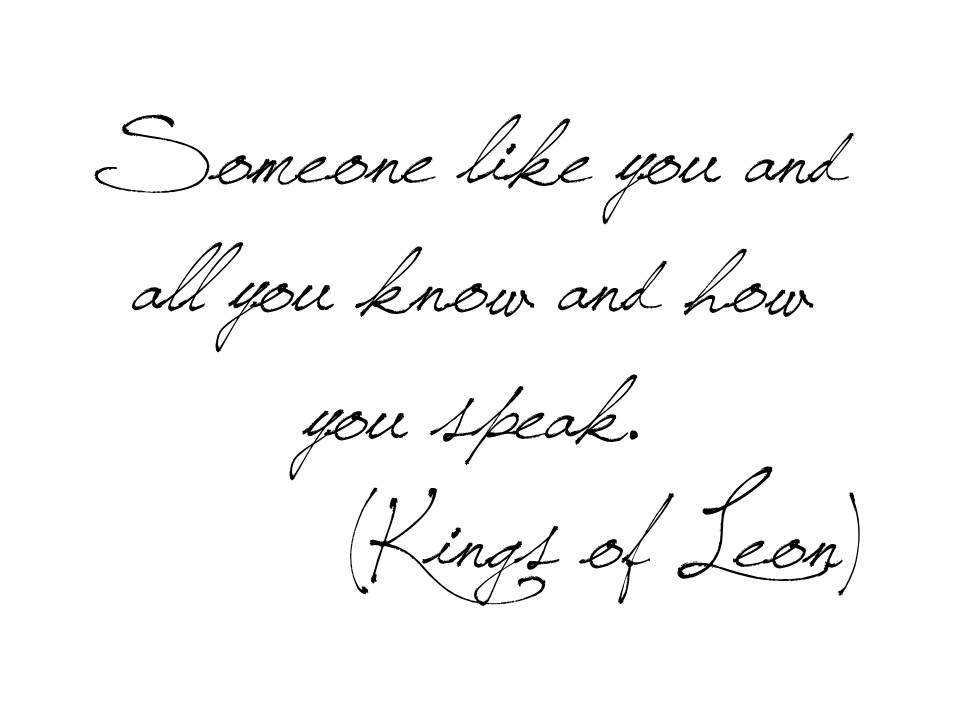 Someone like you and
all you know and how
you speak.
(Kings of Leon)